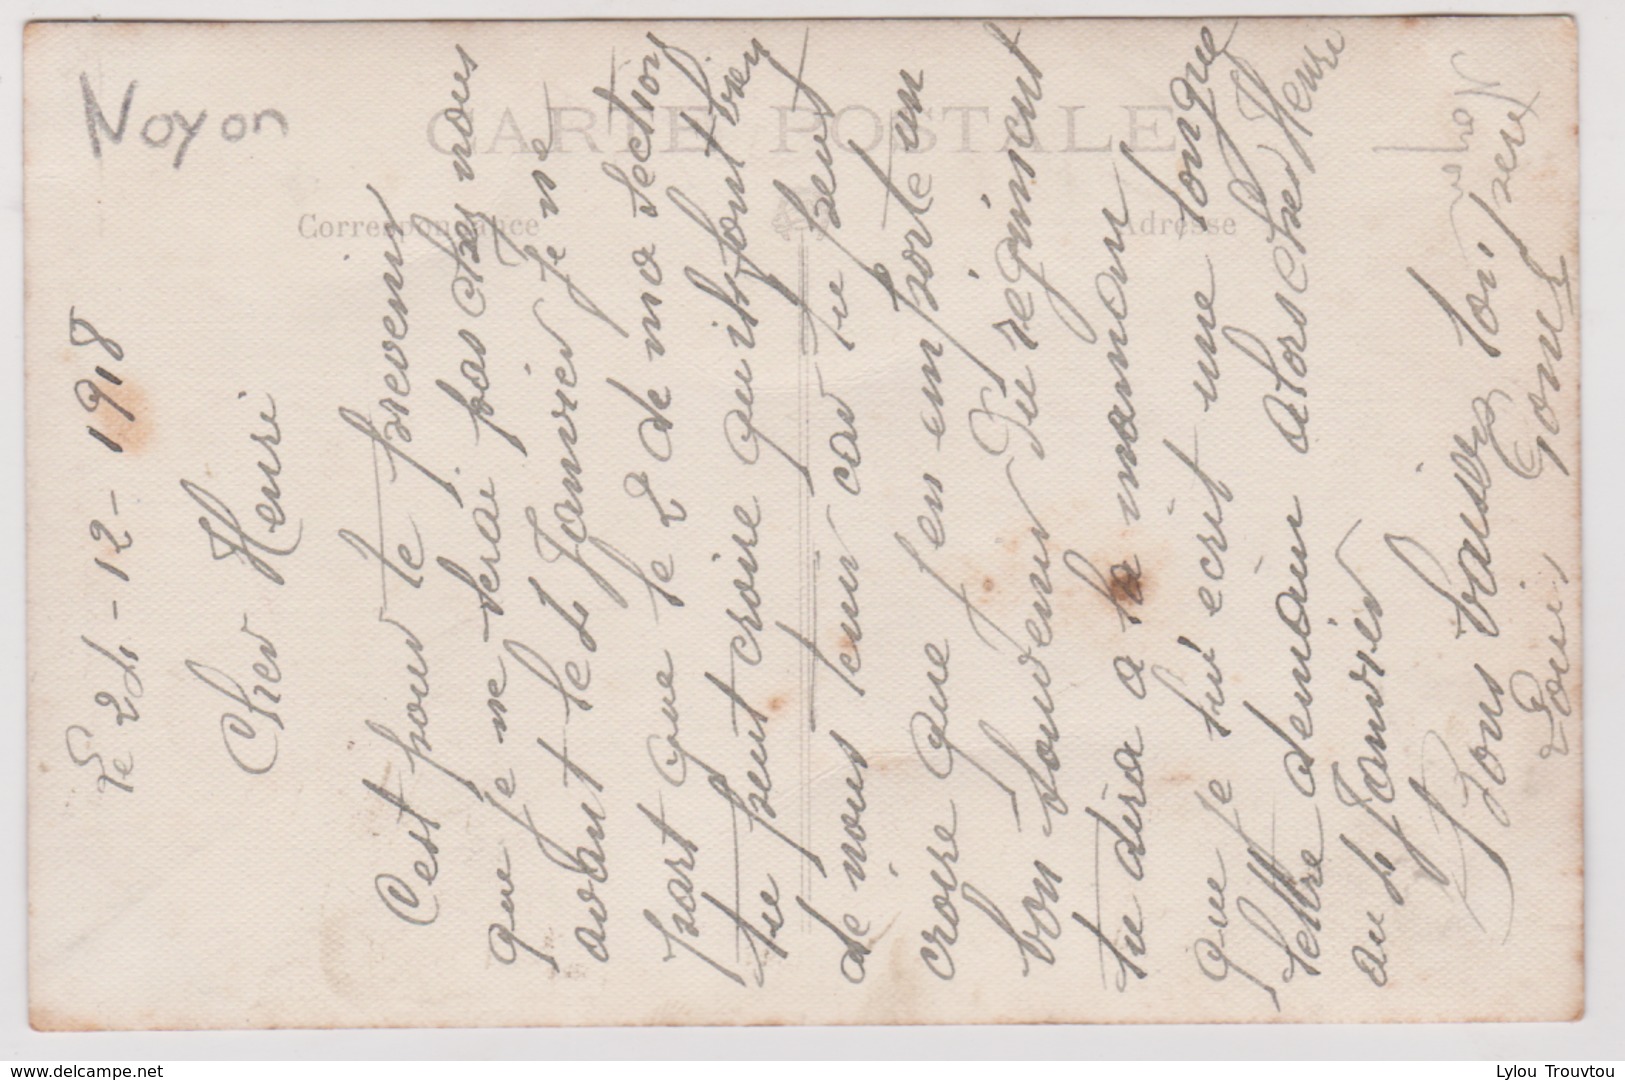 Noyon
CARTE POSTALE
Correspondance
Adresse
Le 24-12-1918
Cher Henri
C'est pour te prevenir
que je ne serai pas chez nous
avant le 4 Janvier je ne
part que le 2 de ma section
tu peut croire qu'ils font bien
de nous tenir car tu peut
croire que j'en emporte un
bon souvenir du regiment
tu dira a ta maman
que je lui ecrit une longue
lettre demain alors cher Henri
au 4 Janvier
Bons baisers ton
Louis
Lylou Trouvtou
www.delcampe.net